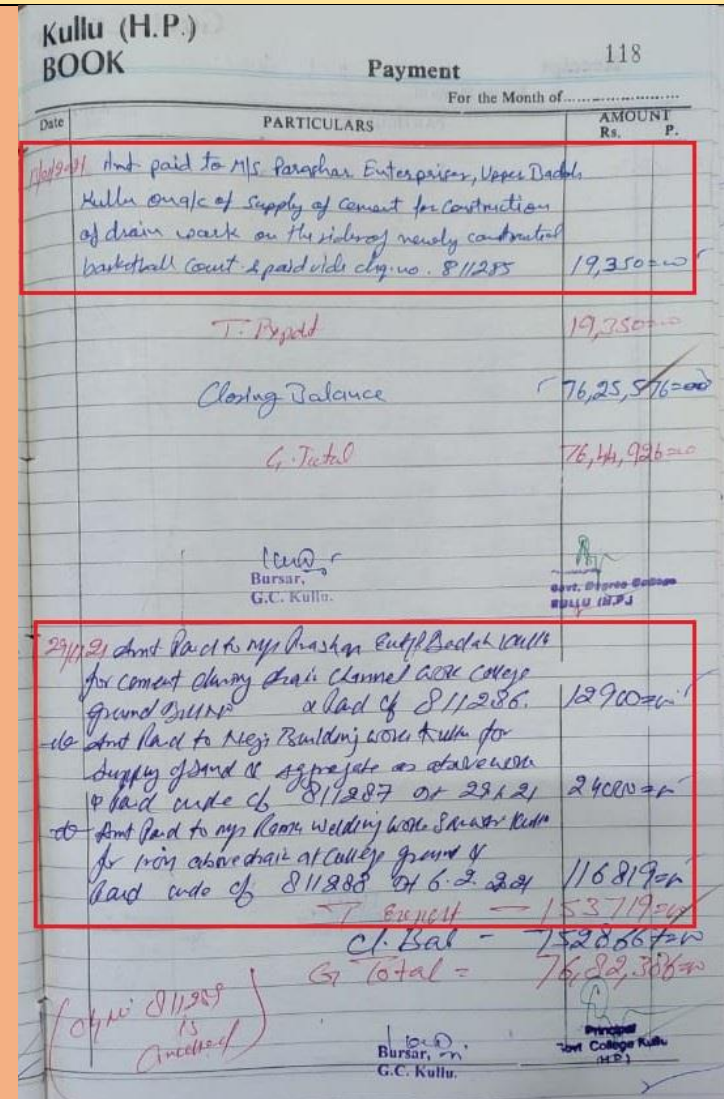 Kullu (H.P.)
BOOK
Payment
118
For the Month of
Date PARTICULARS AMOUNT
Rs. P.
Amt paid to M/S Parashar Enterprises, Upper
Kullu on a/c of Supply of Cement for Contruction
of drain work on the sides of newly contructed
basketball Court & paid vide chq. no. 811285 19,350=00
T. Expdt 19,350=00
Closing Balance 76,25,576=00
G. Total 76,44,926=00
Bursar,
G.C. Kullu.
Govt. Degree College
KULLU (H.P.)
Amt Paid to
for cement work College
ground 811286. 12900=00
do Amt Paid to Negi Building work Kullu for
Supply of Sand & Aggregate as above work
811287 24000=00
do Amt Paid to Welding work
for Iron above drain at College ground &
Paid 811288 116819=00
T Expdt - 153719=00
Cl. Bal - 7528667=00
G Total = 76,82,386=00
Ch no 811289
is
Cancelled
Bursar,
G.C. Kullu.
Principal
Govt College Kullu
(H.P.)